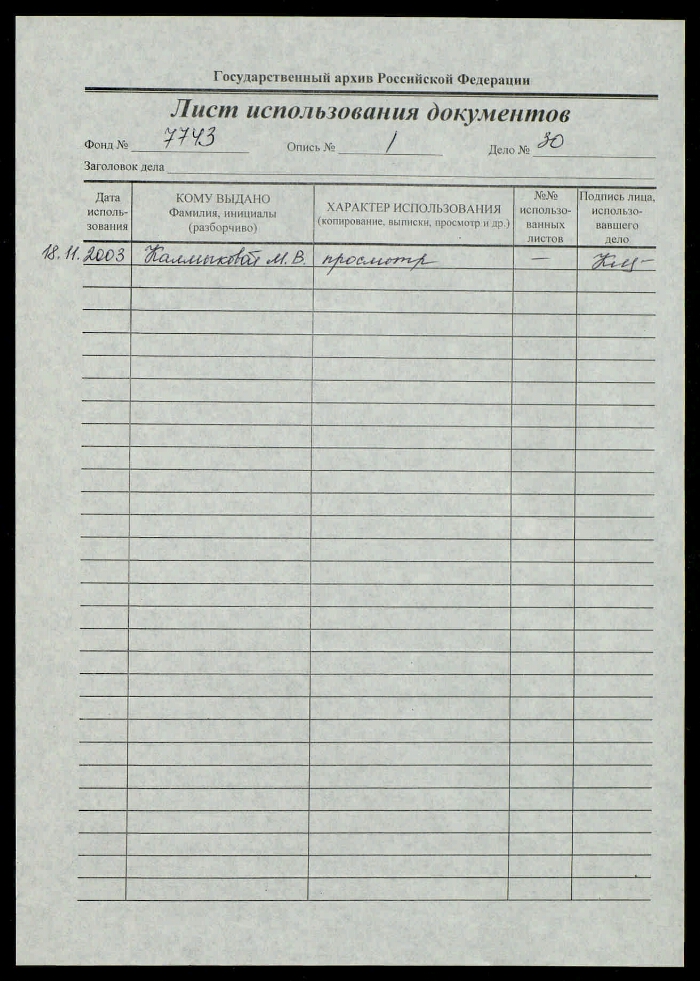 Государственный архив Российской Федерации
Лист использования документов
Фонд № 7743 Опись № 1 Дело № 30
Заголовок дела
Дата исполь- зования
КОМУ ВЫДАНО Фамилия, инициалы (разборчиво)
ХАРАКТЕР ИСПОЛЬЗОВАНИЯ (копирование, выписки, просмотр и др.)
№№ использо- ванных листов
Подпись лица, использо- вавшего дело
18.11.2003 Калмыковой М.В. просмотр —